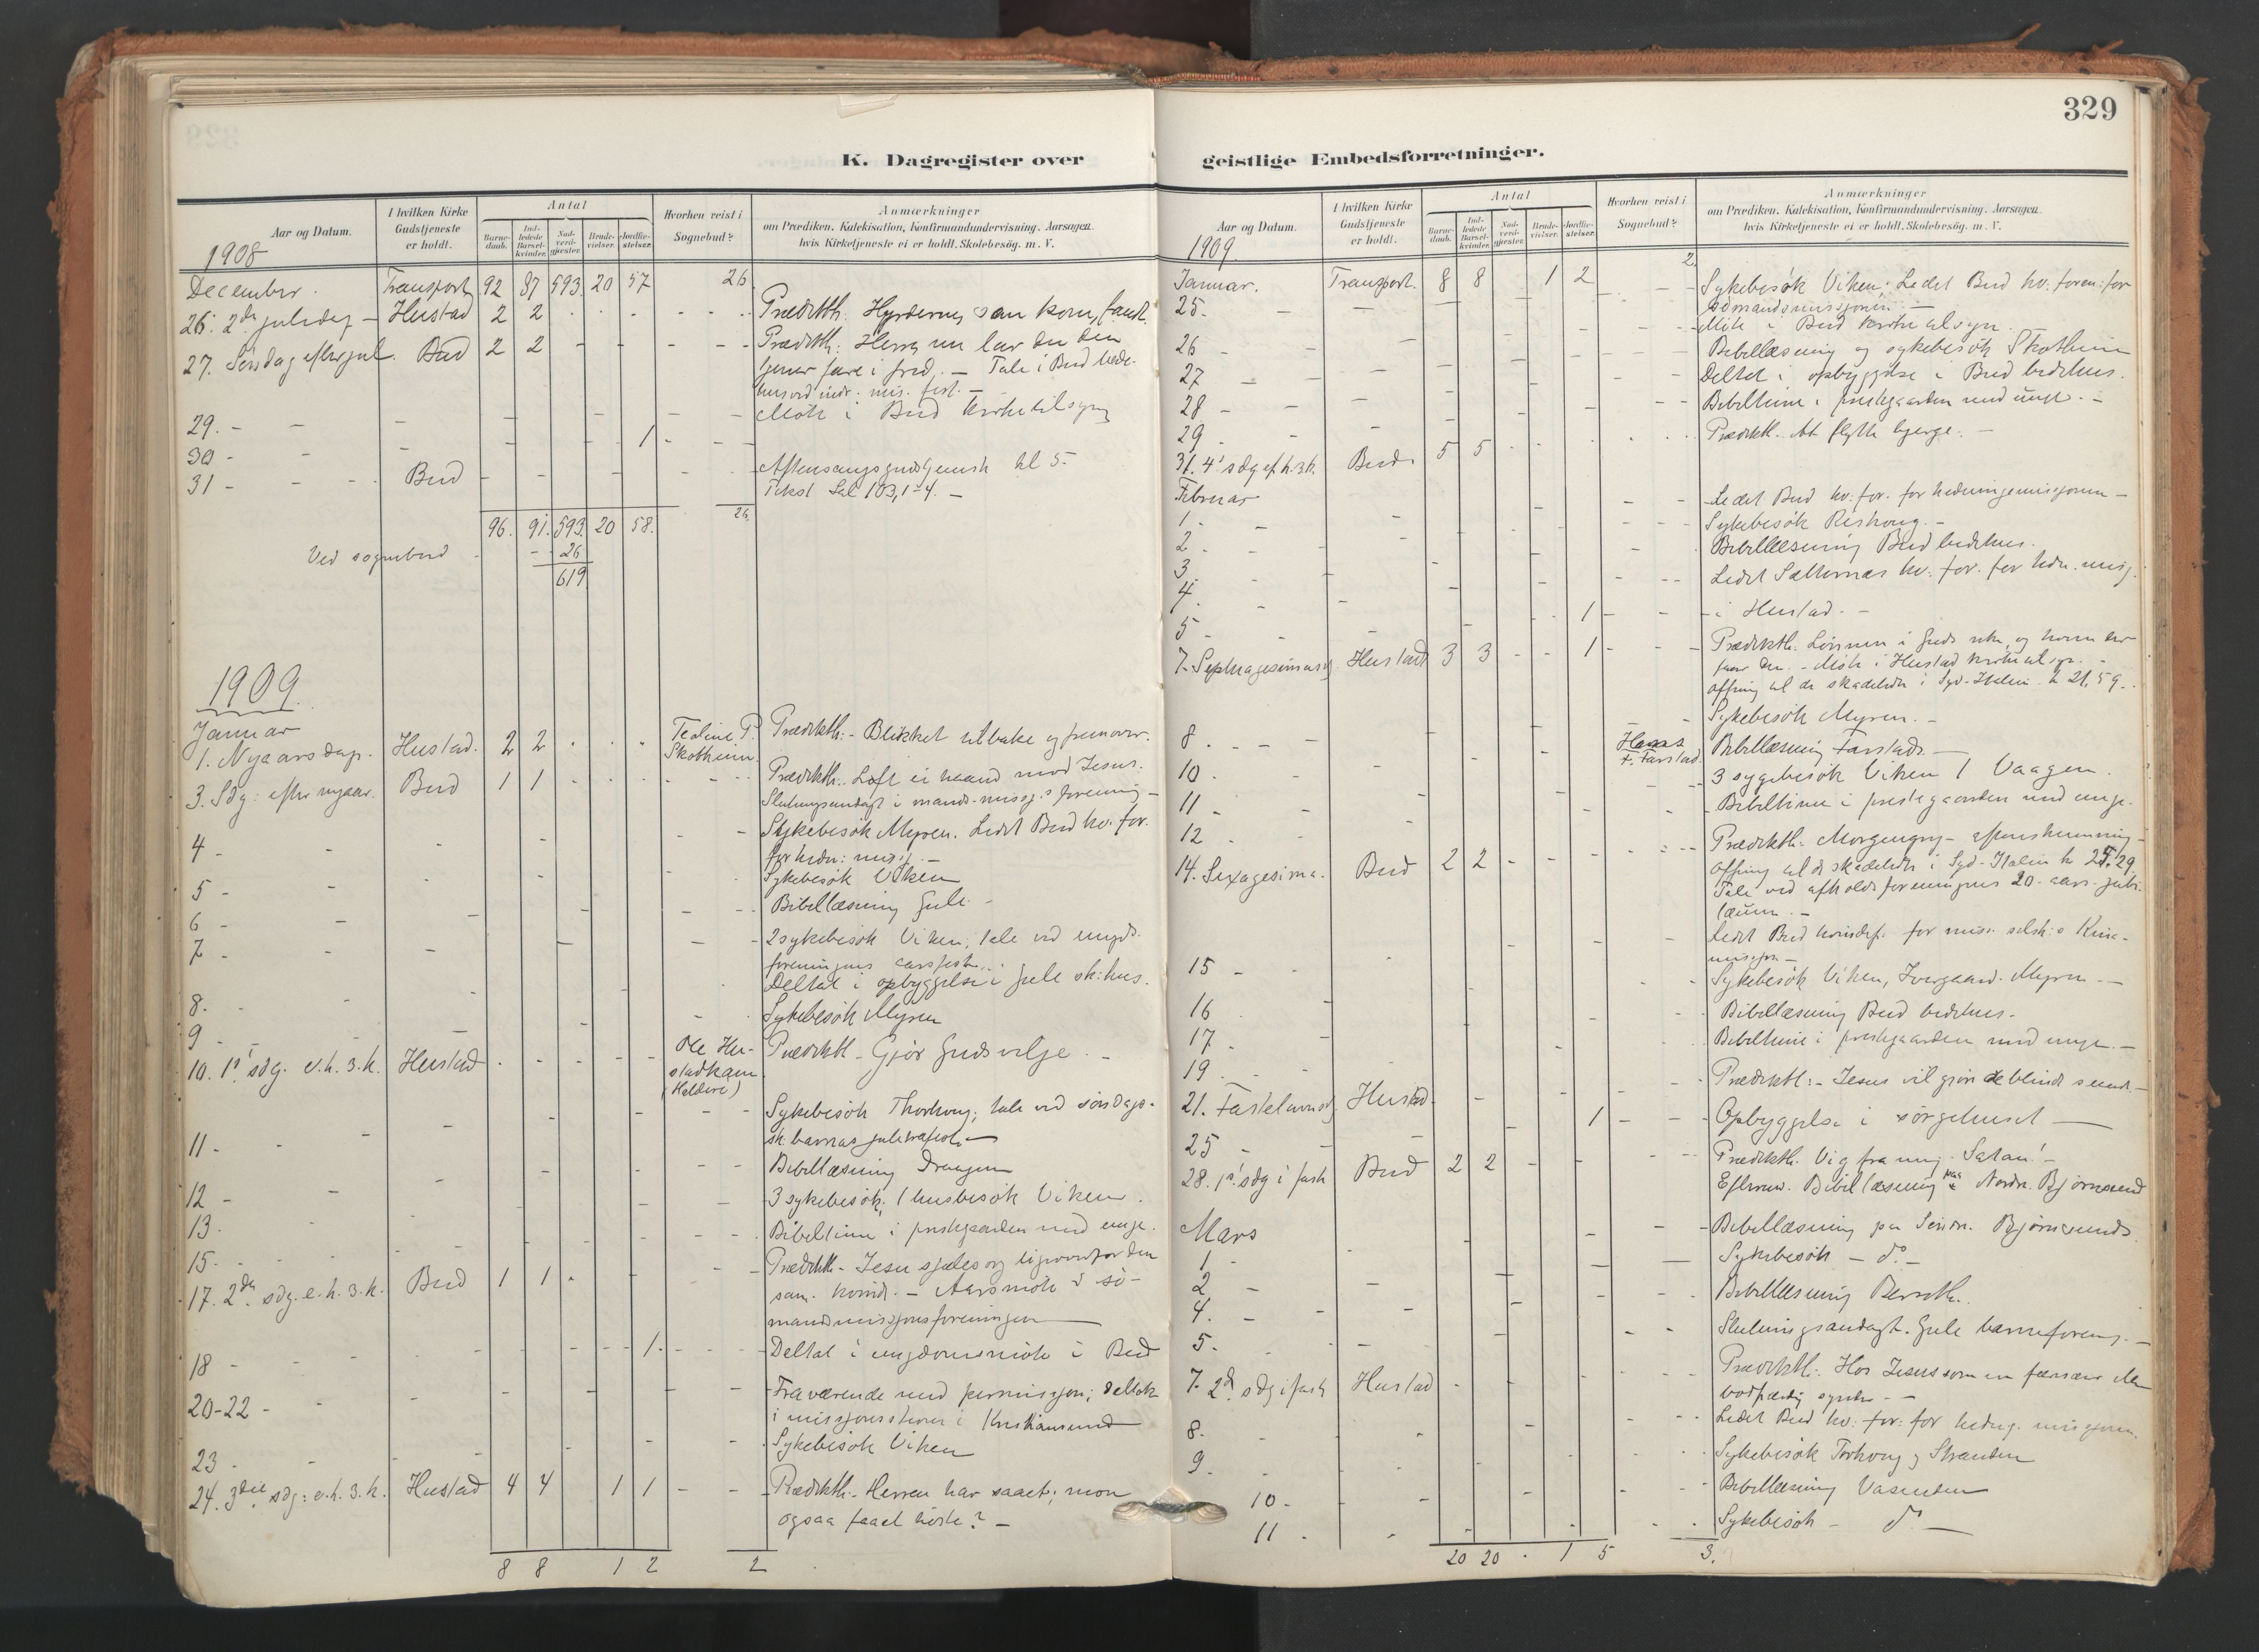 329
K. Dagregister over
Aar og Datum.
I hvilken Kirke Gudstjeneste er holdt.
Antal
Barne-daab.
Ind-ledede Barsel-kvinder.
Nad-verd-gjæster.
Brude-vielser.
Jordfæ-stelser.
Hvorhen reist i Sognebud?
Anmærkninger
om Prædiken, Katekisation, Konfirmandundervisning, Aarsagen
hvis Kirketjeneste ei er holdt. Skolebesøg. m. V.
1908
December. Transport 92 87 593 20 57 26
26. 2den juledag - Hustad 2 2 Prædikth. Hyrderne, som kom, fandt.
27. Søndag efter jul. Bud 2 2 - Prædikth: Herre nu lar du din
tjener fare i fred. - Tale i Bud bede-
hus ved indr. mis. fest. -
29. - - Møte i Bud kirketilsyn
30 - - 1
31 - - Bud - Aftensangsgudstjeneste kl 5.
Tekst Sal 103, 1-4. -
96. 91. 593. 20 58. 26.
Ved sognebud - 26
619
1909.
Januar
1. Nyaarsdag. Hustad. 2 2 Teoline P. Skotheim. Prædikth: - Blikket tilbake og fremover.
3. Sdg: efter nyaar. Bud 1 1 Prædikth: Løft ei haand mod Jesus.
Slutningsandagt i mands-missj.s forening -
4 - - Sykebesøk Myren. Ledet Bud kv. for.
for hedn: missj. -
5 - - Sykebesøk Viken
6 - - Bibellæsning Gule -
7 - - 2 sykebesøk Viken, tale ved ungds.
foreningens aarsfest.
8. - Deltat i opbyggelse i Gule sk: hus.
9 - Sykebesøk Myren
10. 1ste sdg. e.h.3.k. Hustad Ole Hu-stadkam (Kaldere) Prædikth - Gjør Guds vilje. -
11 - - Sykebesøk Thorhoug; tale ved søndags-
sk: barnas juletræfest. -
12 - - Bibellæsning Draagen
13. - 3 sykebesøk; 1 husbesøk Viken.
15. - Bibeltime i prestegaarden med unge.
17. 2den sdg. e.h.3.k. Bud 1 1 - Prædikth - Jesu sjælesorg likeoverfor den
sam. kvinde. - Aarsmøte i sjø-
mandsmissjonsforeningen -
18 - - 1 - Deltat i ungdomsmøte i Bud
20-22 - - Fraværende med permissjon; deltok
i missjonsstevne i Kristiansund
23 - - Sykebesøk Viken
24. 3die sdg: e.h.3.k. Hustad 4 4 1 1 - Prædikth - Herren har saaet; mon
ogsaa faaet høste? -
8 8 1 2 2
geistlige Embedsforretninger.
Aar og Datum.
I hvilken Kirke Gudstjeneste er holdt.
Antal
Barne-daab.
Ind-ledede Barsel-kvinder.
Nad-verd-gjæster.
Brude-vielser.
Jordfæ-stelser.
Hvorhen reist i Sognebud?
Anmærkninger
om Prædiken, Katekisation, Konfirmandundervisning, Aarsagen
hvis Kirketjeneste ei er holdt. Skolebesøg. m. V.
1909.
Januar. Transport. 8 8 1 2 2 Sykebesøk Viken; Ledet Bud kv: foren: for
sømandsmissjonen -
25. - - Møte i Bud kirketilsyn.
26 - - Bibellæsning og sykebesøk Skotheim
27 - - Deltat i opbyggelse i Bud bedehus.
28 - - Bibeltime i prestegaarden med unge. -
29 -
31. 4de sdg ef.h.3.k. Bud. 5 5 Prædikth. At flytte bjerge. -
Februar
1. - - Ledet Bud kv: for. for hedningemissjonen -
2 - - Sykebesøk Rishoug -
3 - - Bibellæsning Bud bedehus.
4. - - Ledet Sælternæs kv: for. for hedn. misj.
5 - - 1 - i Hustad. -
7. Septuagesimas. Hustad 3 3 - - 1 - Prædikth. Lønnen i Guds rike, og hvem der
faar den. - Møte i Hustad kirketilsyn. -
Offring til de skadelidte i Syd-Italien kr 21,59.
8. - - Sykebesøk Myren. -
10. - Hans F. Farstad. Bibellæsning Farstad. -
11 - 3 sygebesøk Viken 1 Vaagen.
12 - Bibeltime i prestegaarden med unge.
14. Sexagesima. Bud 2 2 - Prædikth. Morgengry - aftenskumring -
Offring til de skadelidte i Syd-Italien kr 25,29.
Tale ved afholdsforeningens 20-aars-jubi-
læum. -
15 - Ledet Bud kvindef. for miss. selsk:s Kina-
missjon -
16 Sykebesøk Viken, Ivergaard. Myren -
17 - Bibellæsning Bud bedehus -
19 - Bibeltime i prestegaarden med unge. -
21. Fastelavnsd. Hustad - Prædikth: - Jesus vil gjøre de blinde seende -
25 - - 1 - Opbyggelse i sørgehuset -
28. 1ste sdg i faste Bud 2 2 Prædikth. Vig fra mig Satan! -
Efterm. Bibellæsning paa Nordr. Bjørnsund
Mars
1 - - Bibellæsning paa Søndr. Bjørnsund.
2 - - Sykebesøk - do -
4. - - Bibellæsning Berseth.
5. - - Slutningsandagt. Gule barneforening. -
7. 2den sdg i faste Hustad Prædikth: Hos Jesus som en fattig
botfærdig synder -
8. - Ledet Bud kv: for: for hedng. missjonen.
9. - Sykebesøk Torhoug og Stranden
10 - Bibellæsning Vasenden
11 - Sykebesøk - do -
20 20 - 1 5 3.